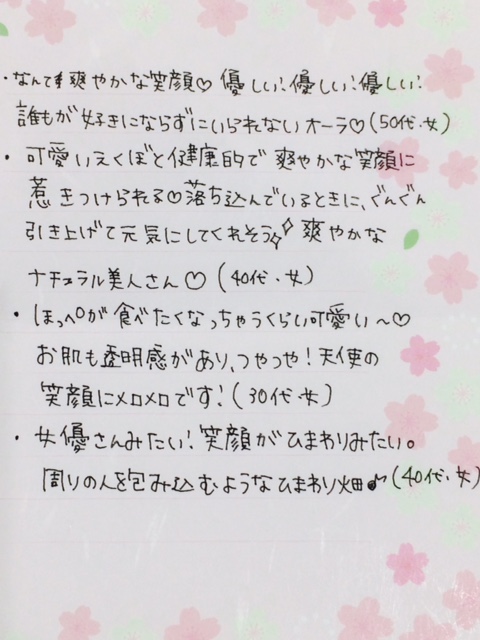 ・なんて爽やかな笑顔♡ 優しい!優しい!優しい!
誰もが好きにならずにいられないオーラ♡(50代・女)
・可愛いえくぼと健康的で爽やかな笑顔に
惹きつけられる♡落ち込んでいるときに、ぐんぐん
引き上げて元気にしてくれそう✨爽やかな
ナチュラル美人さん♡(40代・女)
・ほっぺが食べたくなっちゃうくらい可愛い〜♡
お肌も透明感があり、つやつや!天使の
笑顔にメロメロです!(30代・女)
・女優さんみたい!笑顔がひまわりみたい。
周りの人を包み込むようなひまわり畑♪(40代・女)